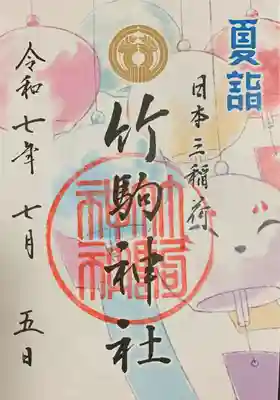 夏詣
日本三稲荷
竹駒神社
令和七年 七月 五日